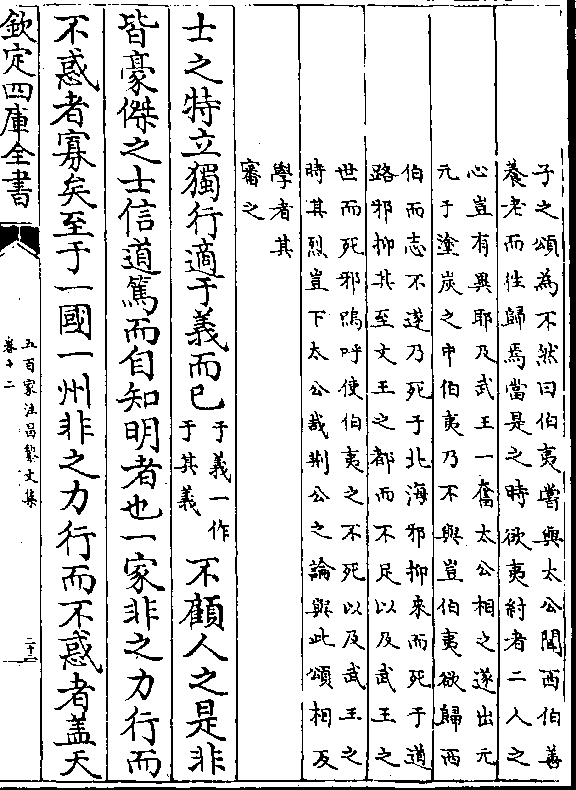 子之頌為不然曰伯夷嘗與太公聞西伯善
養老而徃歸焉當是之時欲夷紂者二人之
心豈有異耶及武王一奮太公相之遂出元
元于塗炭之中伯夷乃不與豈伯夷欲歸西
伯而志不遂乃死于北海邪抑來而死于道
路邪抑其至文王之都而不足以及武王之
世而死邪嗚呼使伯夷之不死以及武王之
時其烈豈下太公哉荆公之論與此頌相反
學者其
審之
士之特立獨行適于義而已于義一作于其義不顧人之是非
皆豪傑之士信道篤而自知明者也一家非之力行而
不惑者寡矣至于一國一州非之力行而不惑者蓋天
欽定四庫全書
五百家注昌黎文集
卷十二
二十二